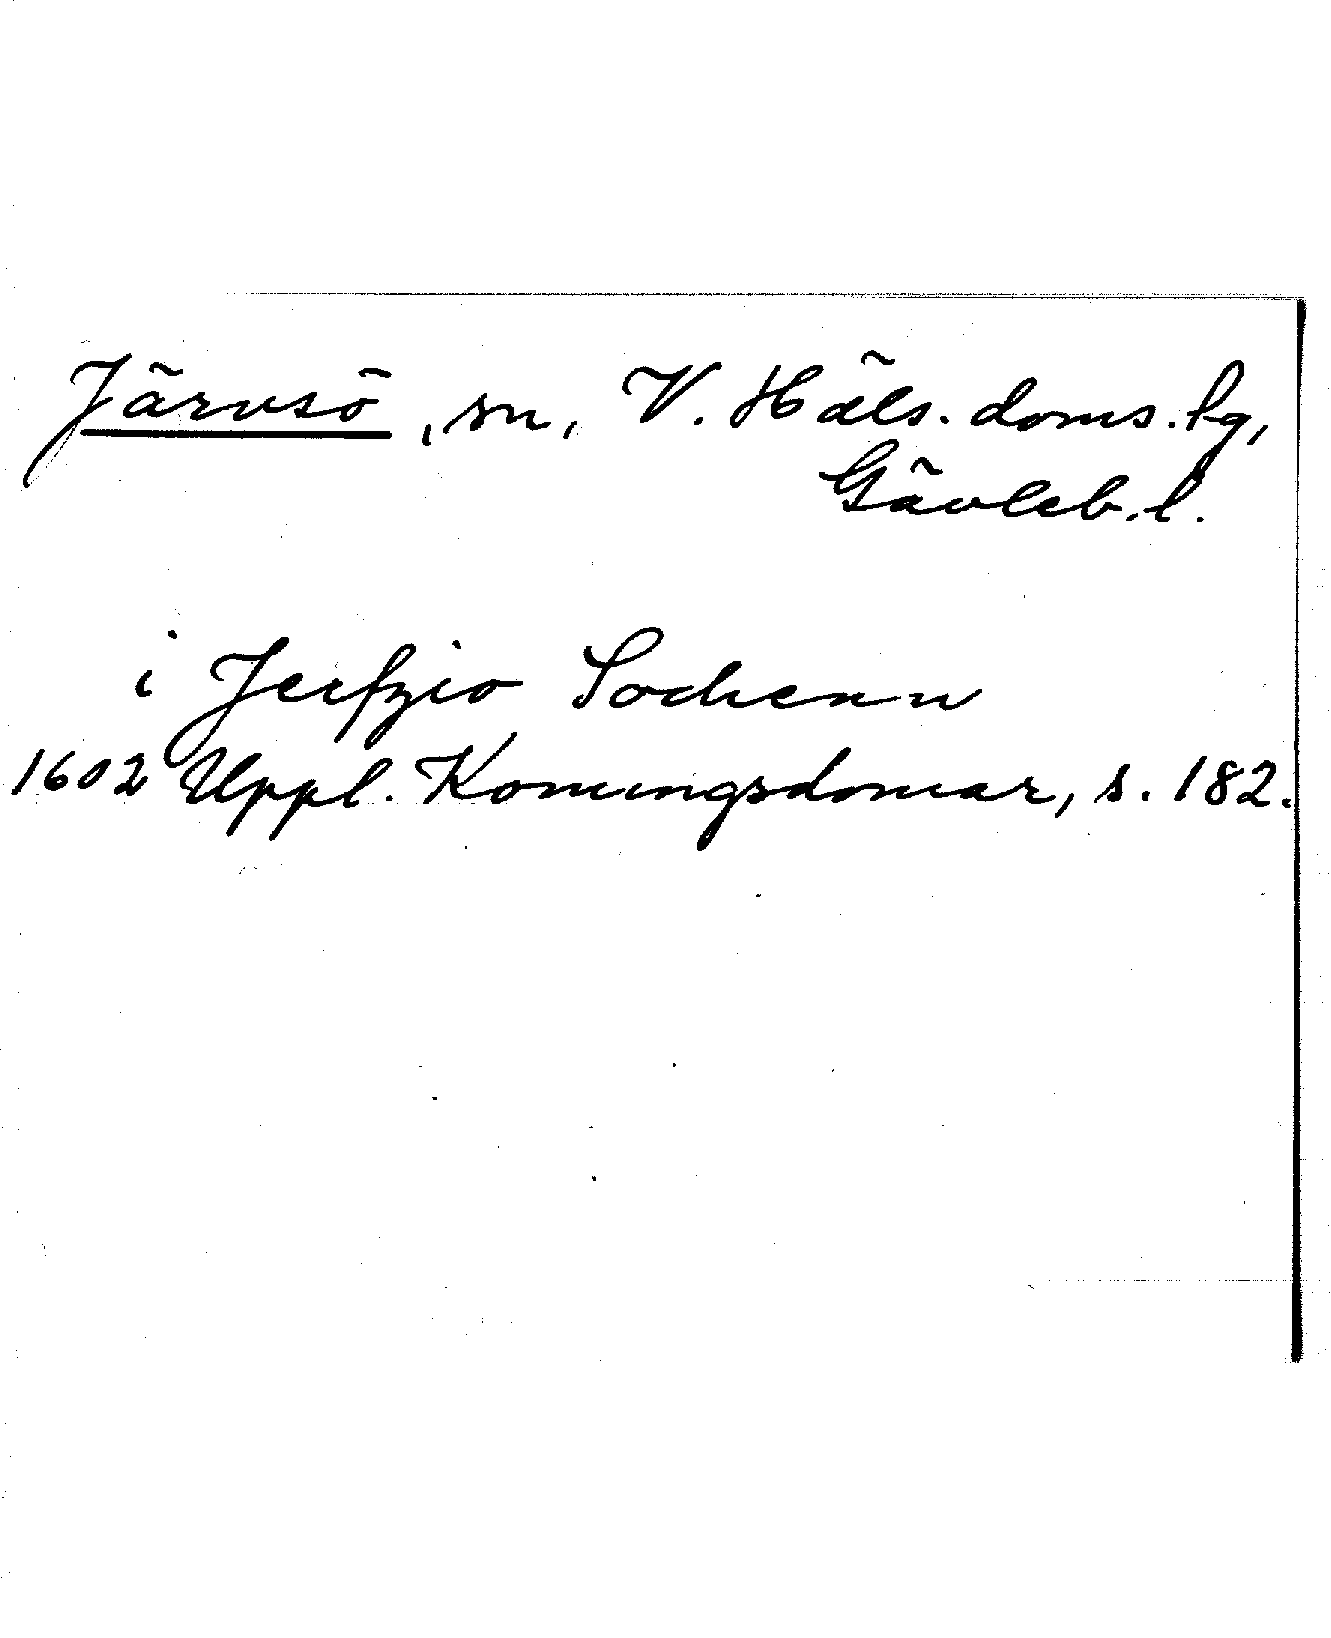 Järvsö, sn, V. Häls. doms. hg,
Gävleb. l.
i Jerfzio Sochenn
1602 Uppl. Konungsdomar, s. 182.